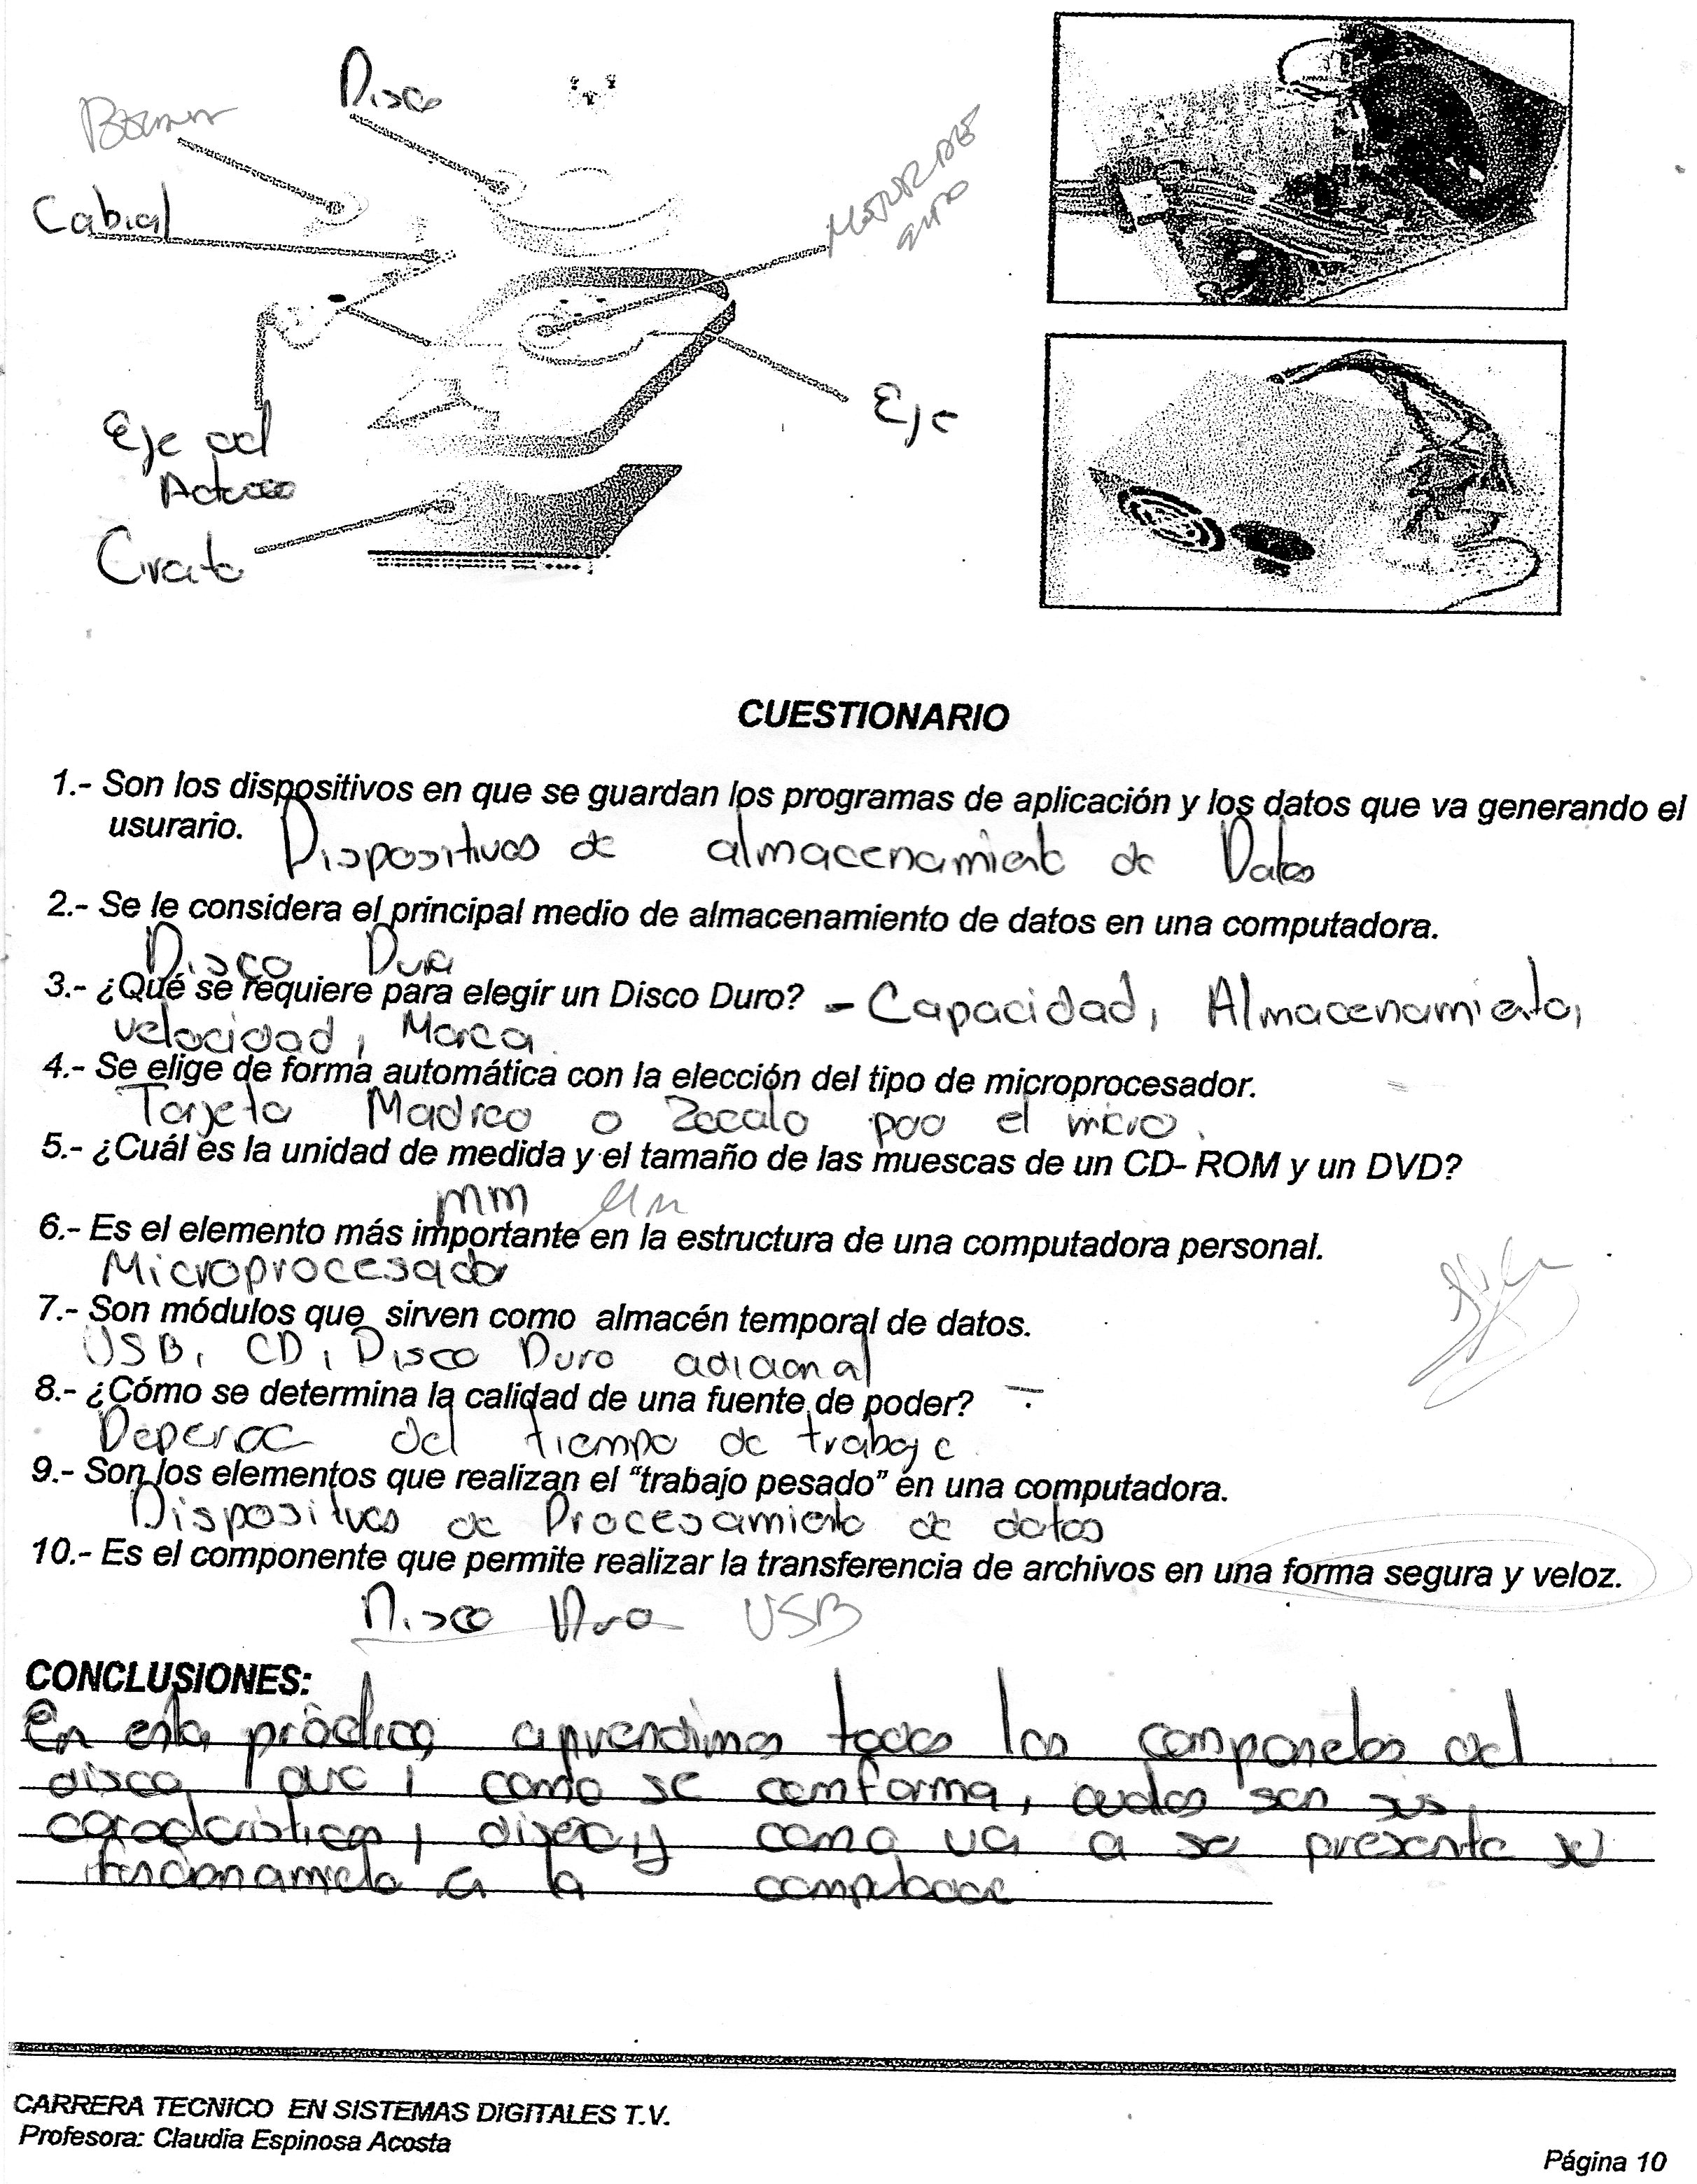 Disco
MOTOR DE
GIRO
Cabial
Eje
Eje del
CUESTIONARIO
1.- Son los dispositivos en que se guardan los programas de aplicación y los datos que va generando el
usurario. Dispositivos de almacenamiento de Datos
2.- Se le considera el principal medio de almacenamiento de datos en una computadora.
Disco Duro
3.- ¿Qué se requiere para elegir un Disco Duro? - Capacidad, Almacenamiento,
velocidad, Marca.
4.- Se elige de forma automática con la elección del tipo de microprocesador.
Tarjeta Madre o Zocalo el micro.
5.- ¿Cuál es la unidad de medida y el tamaño de las muescas de un CD- ROM y un DVD?
mm
6.- Es el elemento más importante en la estructura de una computadora personal.
Microprocesador
7.- Son módulos que sirven como almacén temporal de datos.
USB, CD, Disco Duro adicional
8.- ¿Cómo se determina la calidad de una fuente de poder?
Depende del tiempo de trabajo
9.- Son los elementos que realizan el "trabajo pesado" en una computadora.
Dispositivos de Procesamiento de datos
10.- Es el componente que permite realizar la transferencia de archivos en una forma segura y veloz.
Disco Duro USB
CONCLUSIONES:
En esta práctica aprendimos todos los componetes del
disco como se comforma, cuales son sus
caracteristicas, diseño, y como va a se presente su
funcionamieto a la
CARRERA TECNICO EN SISTEMAS DIGITALES T.V.
Profesora: Claudia Espinosa Acosta
Página 10